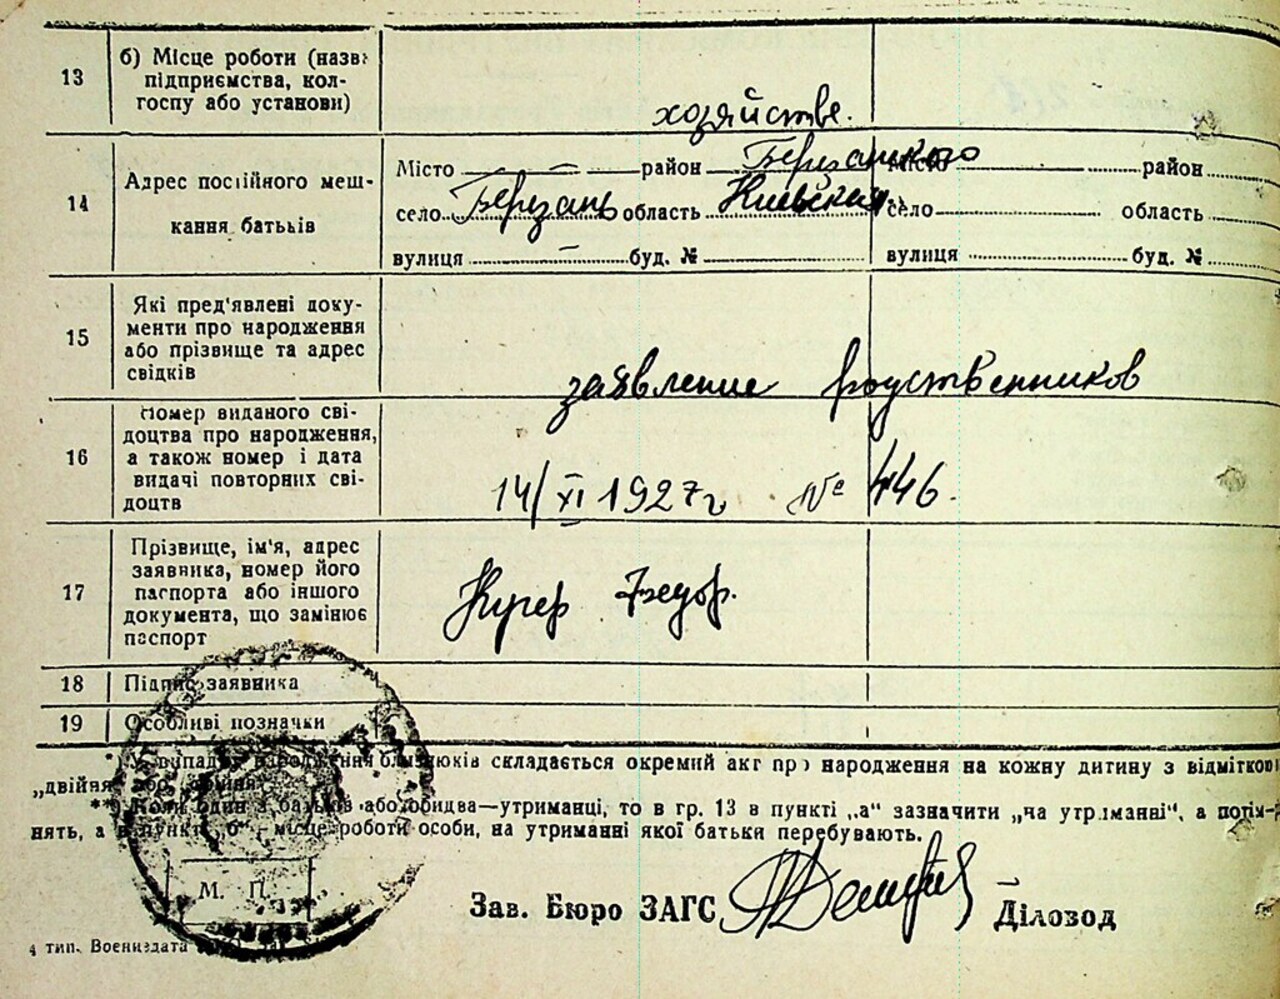 13
б) Місце роботи (назва
підприємства, кол-
госпу або установи)
хозяйстве.
14
Адрес постійного меш-
кання батьків
Місто — район Березанского
село Березань область Киевская
вулиця — буд. №
Місто район
село область
вулиця буд. №
15
Які пред'явлені доку-
менти про народження
або прізвище та адрес
свідків
заявление родственников
16
Номер виданого сві-
доцтва про народження,
а також номер і дата
видачі повторних сві-
доцтв
14/XI 1927г № 446.
17
Прізвище, ім'я, адрес
заявника, номер його
паспорта або іншого
документа, що замінює
паспорт
Кугер Федор.
18
Підпис заявника
19
Особливі позначки
У випадку народження близнюків складається окремий акт про народження на кожну дитину з відміткою
„двійня" або
**) Коли один з батьків або обидва—утриманці, то в гр. 13 в пункті „а" зазначити „на утриманні", а потім
нять, а в пункті „б"—місце роботи особи, на утриманні якої батьки перебувають.
М. П.
Зав. Бюро ЗАГС
Діловод
4 тип. Воениздата